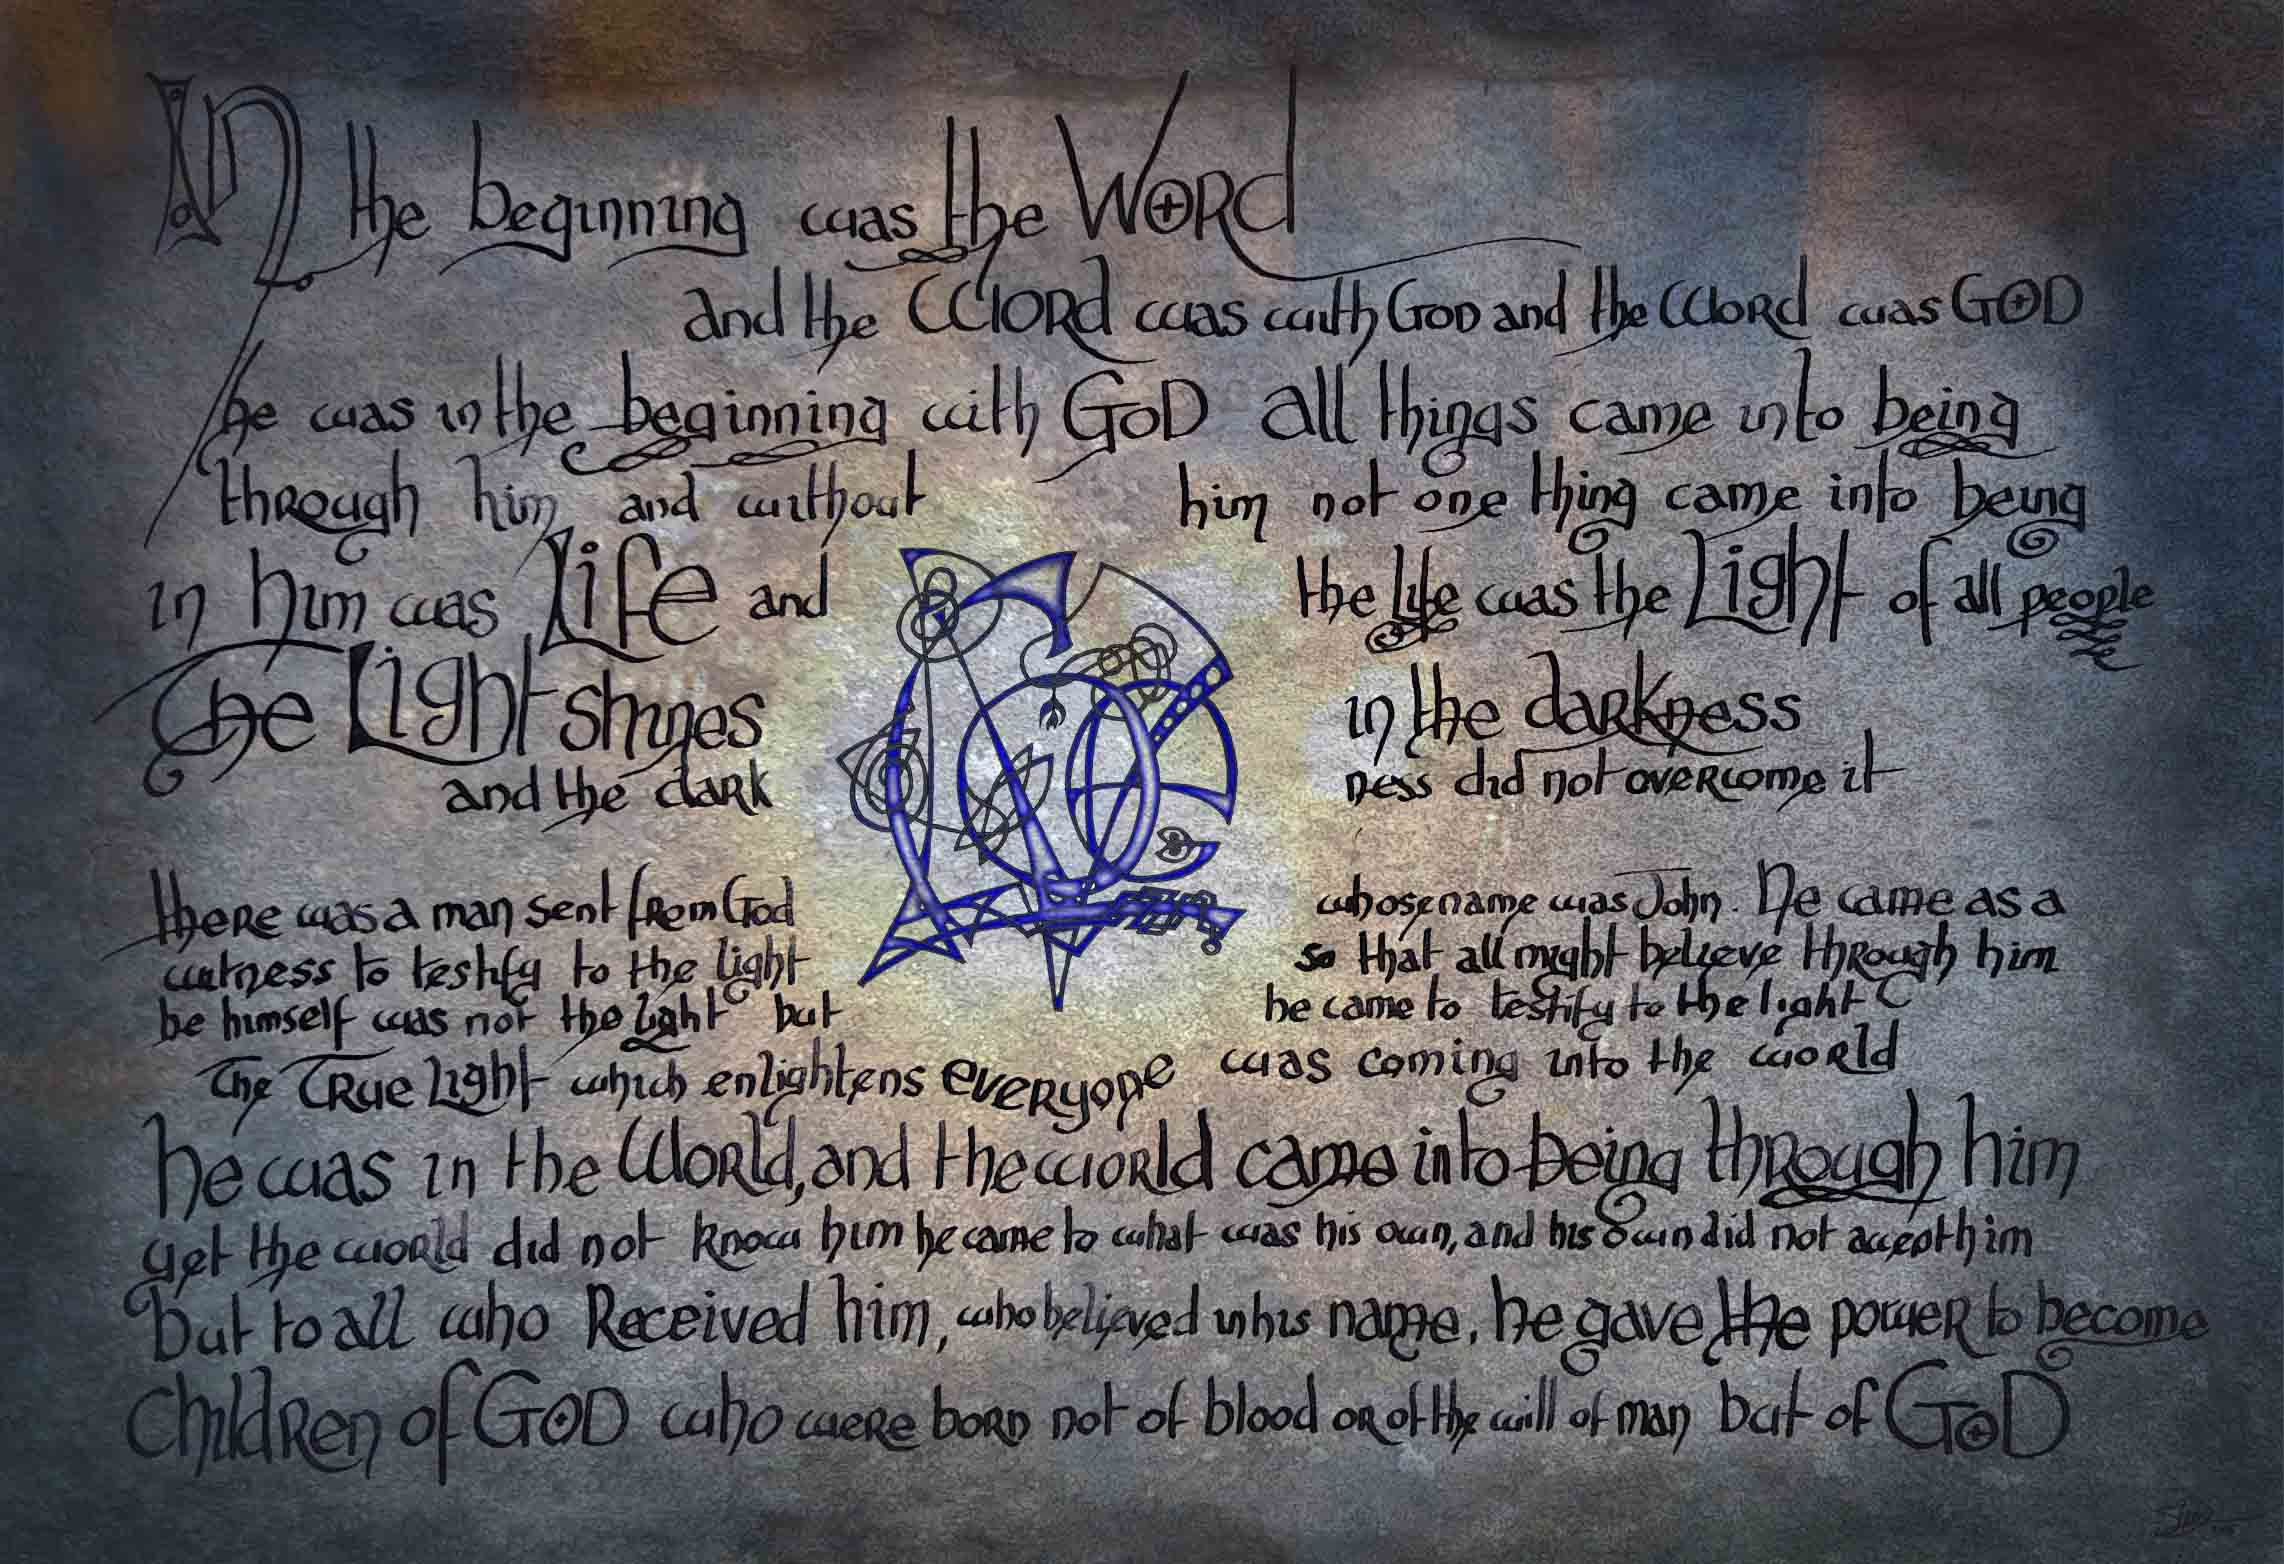 In the beginning was the WORD
and the WORD was with GOD and the Word was GOD
he was in the beginning with GOD all things came into being
through him and without him not one thing came into being
in him was Life and the life was the Light of all people
The Light shines in the darkness
and the dark ness did not overcome it
there was a man sent from God whose name was John. He came as a
witness to testify to the light so that all might believe through him
he himself was not the light but he came to testify to the light
The True Light which enlightens everyone was coming into the world
he was in the World, and the world came into being through him
yet the world did not know him he came to what was his own, and his own did not accept him
but to all who Received him, who believed in his name, he gave the power to become
children of GOD who were born not of blood or of the will of man but of GOD